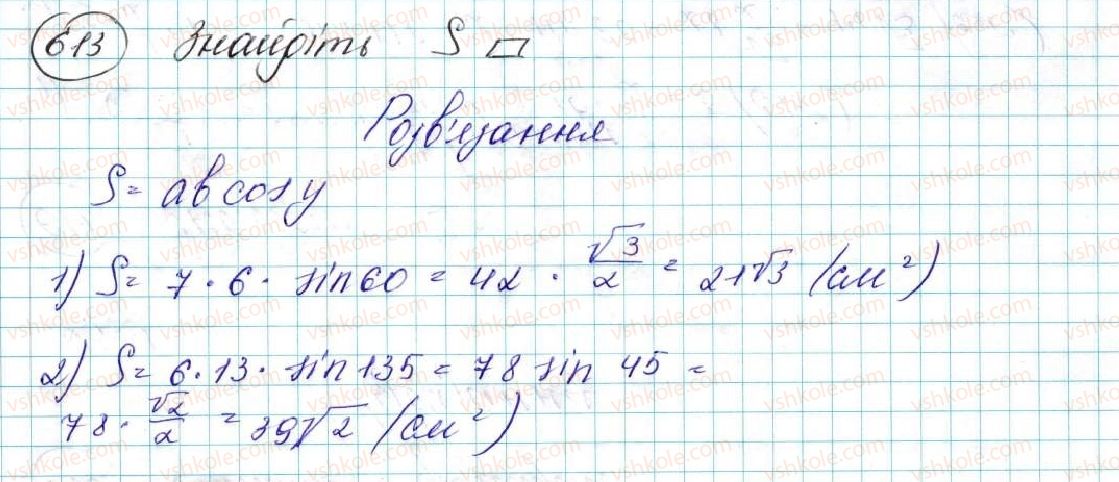 613 Знайдіть S ▱
Розв'язання
S = ab cos γ
1) S = 7 · 6 · sin 60 = 42 · √3/2 = 21√3 (см²)
2) S = 6 · 13 · sin 135 = 78 sin 45 =
78 · √2/2 = 39√2 (см²)
vshkole.com